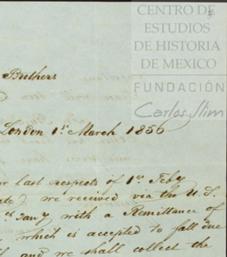 CENTRO DE
ESTUDIOS
DE HISTORIA
DE MEXICO
FUNDACIÓN
Carlos Slim
Brothers
London 1st March 1856
last respects of 1st Feby
we received via the U.S.
with a Remittance of
which is accepted to fall due
and we shall collect the